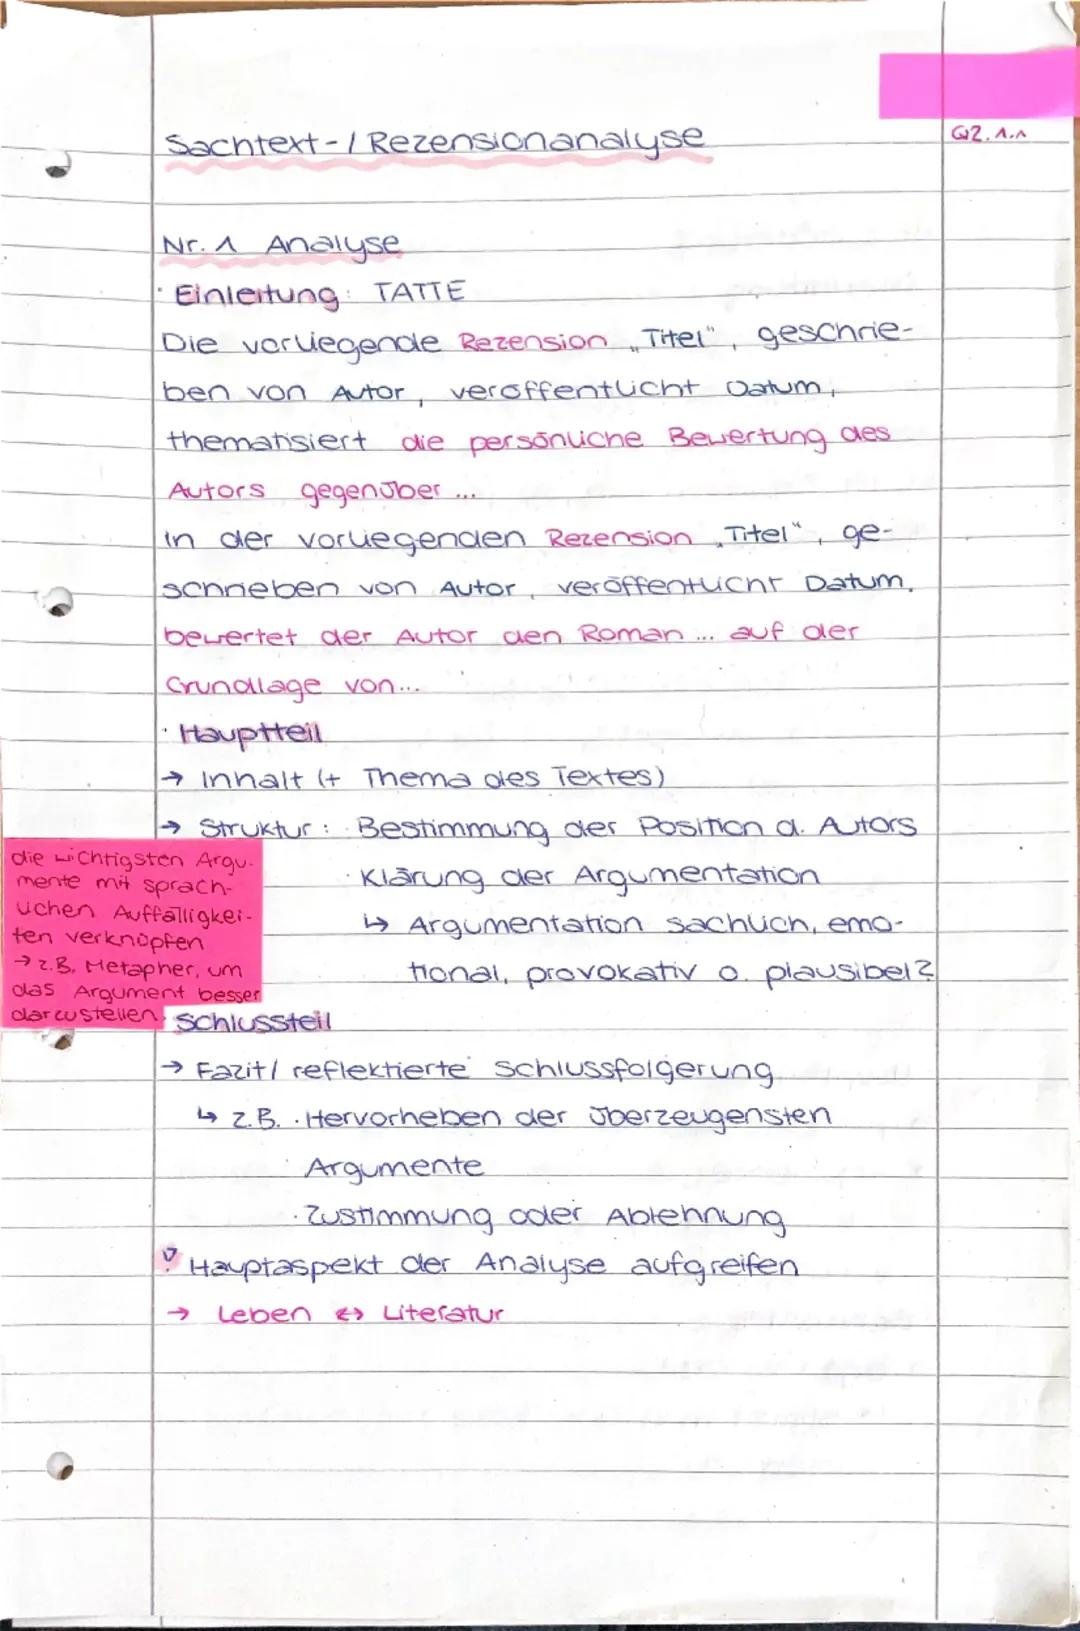 Sachtext-/Rezensionanalyse
Q2.1.1
Nr. 1 Analyse
· Einleitung: TATTE
Die vorliegende Rezension „Titel", geschrie-
ben von Autor, veröffentlicht Datum,
thematisiert die persönliche Bewertung des
Autors gegenüber ...
In der vorliegenden Rezension „Titel", ge-
schrieben von Autor, veröffentlicht Datum,
bewertet der Autor den Roman ... auf der
Grundlage von...
· Hauptteil
→ Inhalt (+ Thema des Textes)
→ Struktur: · Bestimmung der Position d. Autors
· Klärung der Argumentation
↳ Argumentation sachlich, emo-
tional, provokativ o. plausibel?
die wichtigsten Argu-
mente mit sprach-
lichen Auffälligkei-
ten verknüpfen
→ z.B. Metapher, um
das Argument besser
darzustellen
· Schlussteil
→ Fazit/ reflektierte Schlussfolgerung
↳ z.B. · Hervorheben der überzeugensten
Argumente
· Zustimmung oder Ablehnung
! Hauptaspekt der Analyse aufgreifen
→ Leben ↔ Literatur